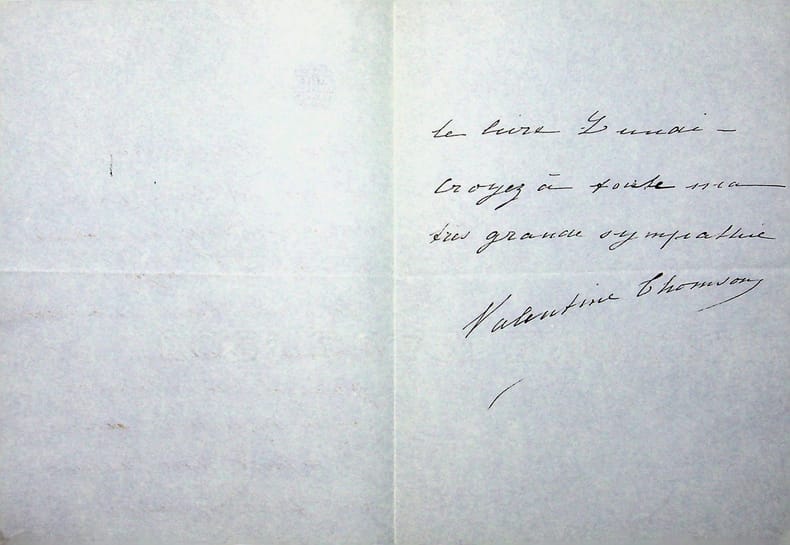 le livre Lundi –
Croyez à toute ma
très grande sympathie
Valentine Thomson